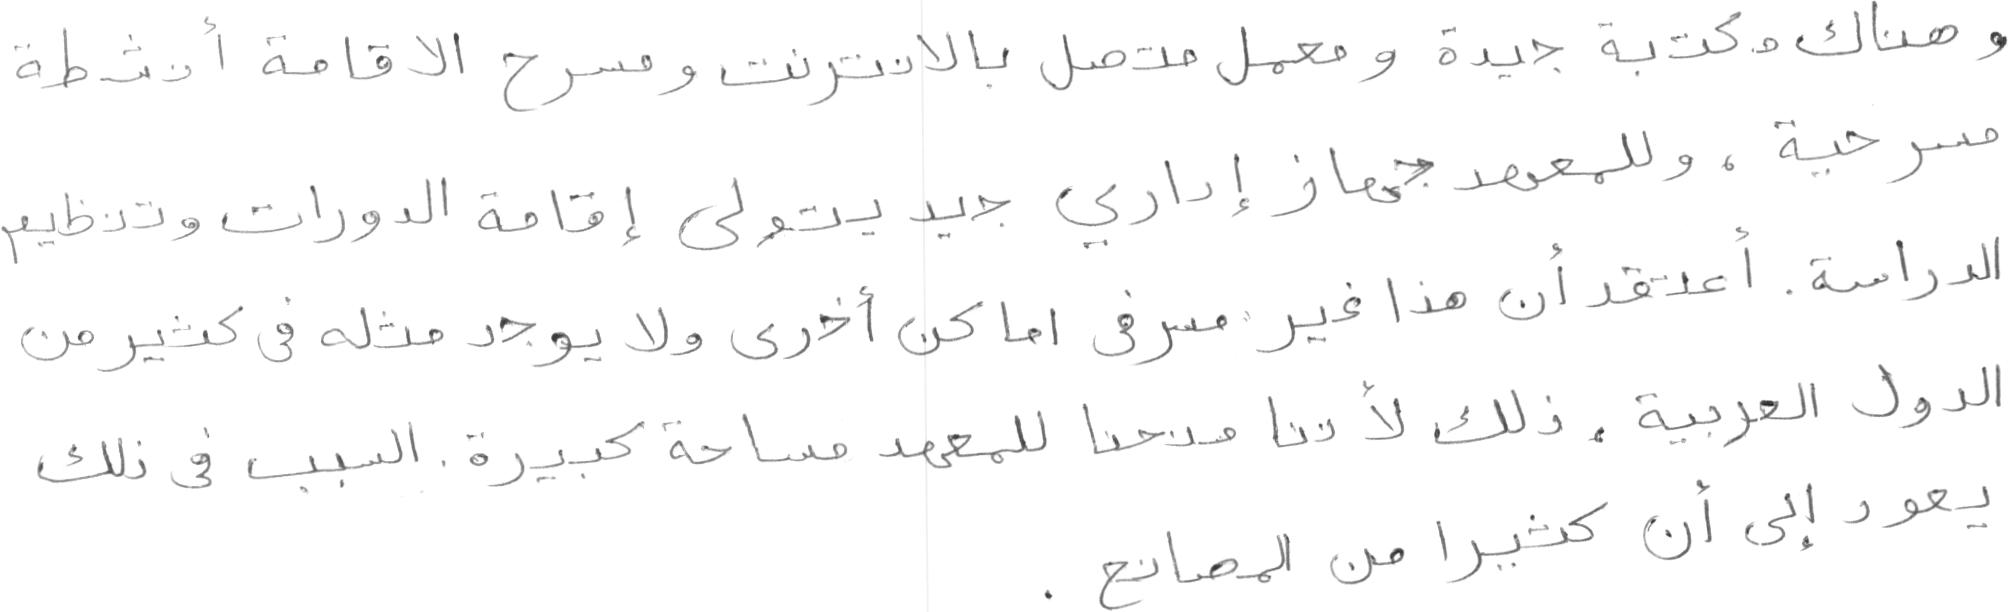 وهناك مكتبة جيدة ومعمل متصل بالانترنت ومسرح الاقامة أنشطة
مسرحية ، وللمعهد جهاز إداري جيد يتولى إقامة الدورات وتنظيم
الدراسة . أعتقد أن هذا غير مسرفى اماكن أخرى ولا يوجد مثله فى كثير من
الدول العربية . ذلك لأننا منحنا للمعهد مساحة كبيرة . السبب فى ذلك
يعود إلى أن كثيرا من المصانع .